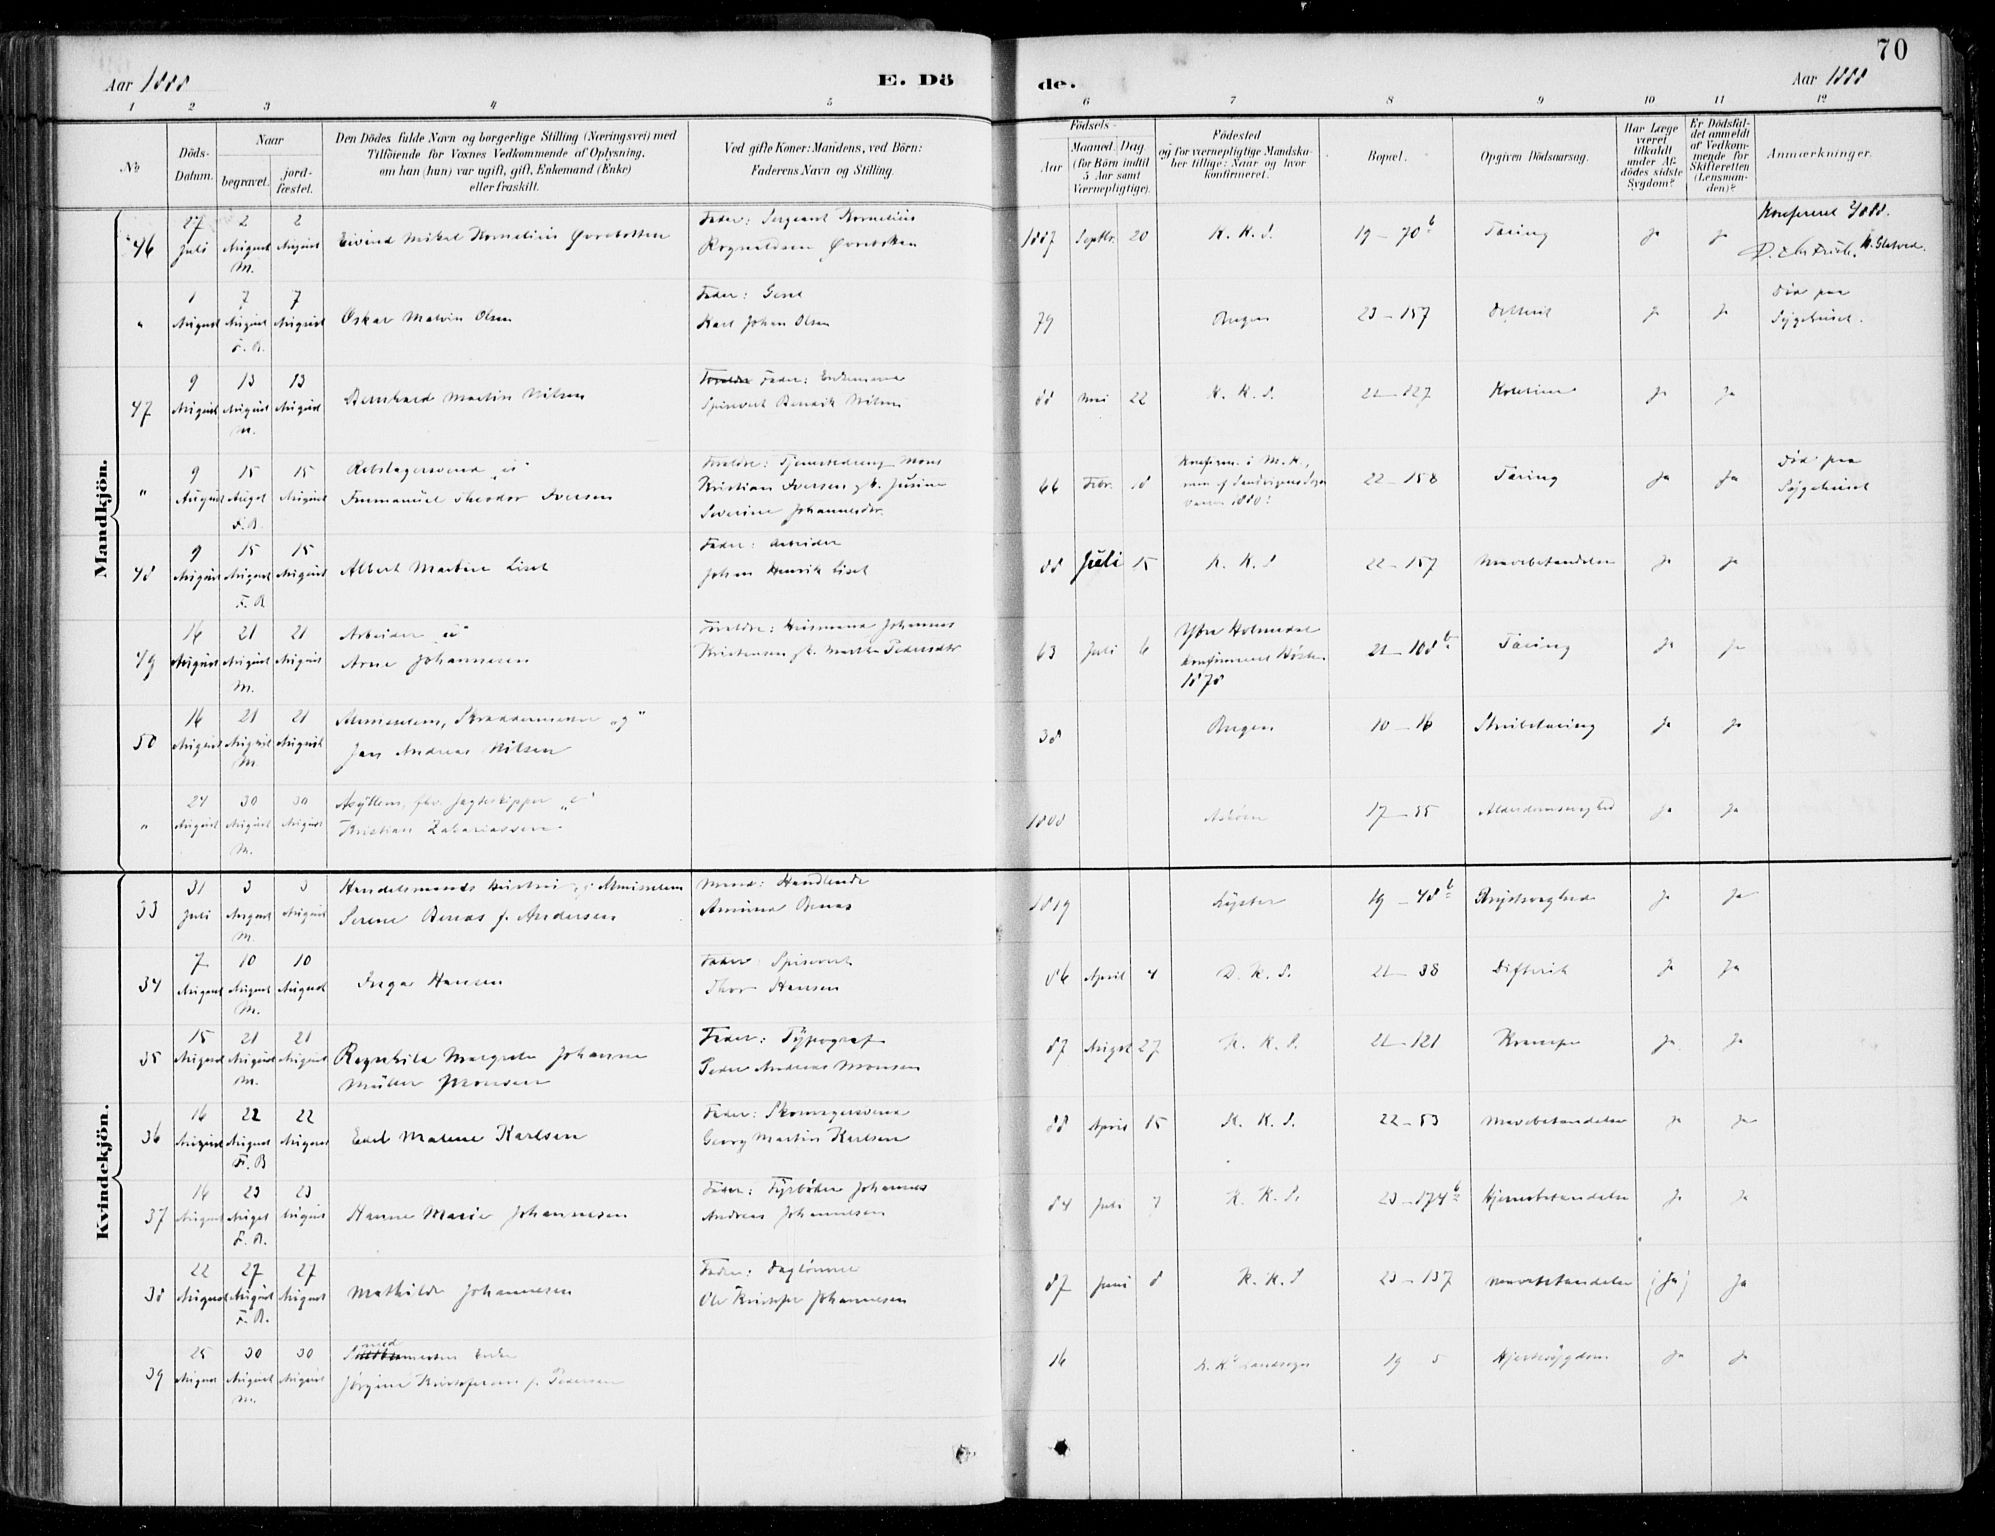 70
Aar 1888
E. Dö
de.
Aar 1888
1 2 3 4 5 6 7 8 9 10 11 12
No
Döds-Datum.
Naar
begravet.
jord-fæstet.
Den Dödes fulde Navn og borgerlige Stilling (Næringsvei) med
Tilföiende for Voxnes Vedkommende af Oplysning,
om han (hun) var ugift, gift, Enkemand (Enke)
eller fraskilt.
Ved gifte Koner: Mandens, ved Börn:
Faderens Navn og Stilling.
Födsels-
Aar
Maaned. Dag.
(for Börn indtil
5 Aar samt
Værnepligtige).
Födested
og for værnepligtige Mandska-
ber tillige: Naar og hvor
konfirmeret.
Bopæl.
Opgiven Dödsaarsag.
Har Læge
været
tilkaldt
under Af-
dödes sidste
Sygdom?
Er Dödsfal-
det anmeldt
af Vedkom-
mende for
Skifteretten
(Lensman-
den)?
Anmærkninger.
Mandkjön.
46 27 Juli 2 August M. 2 August Eivind Mikal Kornelius Øvrebotten Fader: Sergeant Kornelius 1887 Septbr. 20 K. K. S. 19 – 70 b Tæring Ja Ja Konfereret 4/8 88.
" 1 August 7 August F. B. 7 August Oskar Malvin Olsen Fader: Karl Johan Olsen 79 Bergen 23 – 157 Ja Ja Død paa Sygehuset.
47 9 August 13 August M. 13 August Bernhard Martin Nilsen Fader: Henrik Nilsen 88 Mai 22 K. K. S. 21 – 127 Kolerine Ja Ja
" 9 August 15 Augst F. B. 15 August Rebslagersvend "u" Immanuel Theodor Iversen Foreldre: Tjenestedreng Mons Kristian Iversen gb. Severine Johannesdtr. 66 Febr. 8 Konfirm. i M. K., 22 – 158 Tæring Ja Ja Død paa Sygehuset
48 9 August 15 August F. B 15 August Albert Martin Liset Fader: Arbeider Johan Henrik Liset 88 Juli 15 K. K. S 22 – 157 Mavebetændelse Ja Ja
49 16 August 21 August M. 21 August Arbeider "u" Arne Johannesen Foreldre: Husmand Johannes Kristensen gb. Martha Pedersdtr 63 Juli 6 Ytre Holmedal konfirmeret Høsten 1878 21 – 108 b Tæring Ja Ja
50 16 August 21 August M 21 August Almisselem, Skræddermester "g" Jan Andreas Nilsen 38 Bergen 10 – 16 Strubetæring Ja Ja
" 24 August 30 August M. 30 August Asyllem, fhv. Jagteskipper "e" Kristian Zakariassen 1800 Askøen 17 – 55 Alderdomssvaghed Ja Ja
Kvindekjön.
33 31 Juli 3 August M. 3 August Handelsmands Hustru, Almisselem Serene Benas f. Andersen Mand: Handlende Amund Benas 1819 Lyster 19 – 48 b Brystsvaghed Ja Ja
34 7 August 10 August M. 10 August Inga Hansen Fader: Spisevert Thor Hansen 86 April 4 D. K. S. 21 – 38 Difterit Ja Ja
35 15 August 21 August M. 21 August Ragnhild Margrete Johanne Müller Monsen Fader: Typograf Peder Andreas Monsen 87 Augst 27 K. K. S. 21 – 121 Krampe Ja Ja
36 16 August 22 August F. B 22 August Edel Malene Karlsen Fader: Skomagersvend Georg Martin Karlsen 88 April 15 K. K. S. 22 – 53 Mavebetændelse Ja Ja
37 16 August 23 Augst F. B. 23 August Hanne Marie Johannesen Fader: Fyrbøder Johannes Andreas Johannesen 84 Juli 7 K. K. S. 23 – 174 b Hjernebetændelse Ja Ja
38 22 August 27 August F. B. 27 August Mathilde Johannesen Fader: Dagløner Ole Kristofer Johannesen 87 Juni 8 K. K. S 23 – 137 Mavebetændelse (Ja) Ja
39 25 August 30 August M. 30 August Smedmesters Enke Jørgine Kristofersen f. Pedersen 16 D. K. Landsogn 19 5 Hjertesygdom Ja Ja